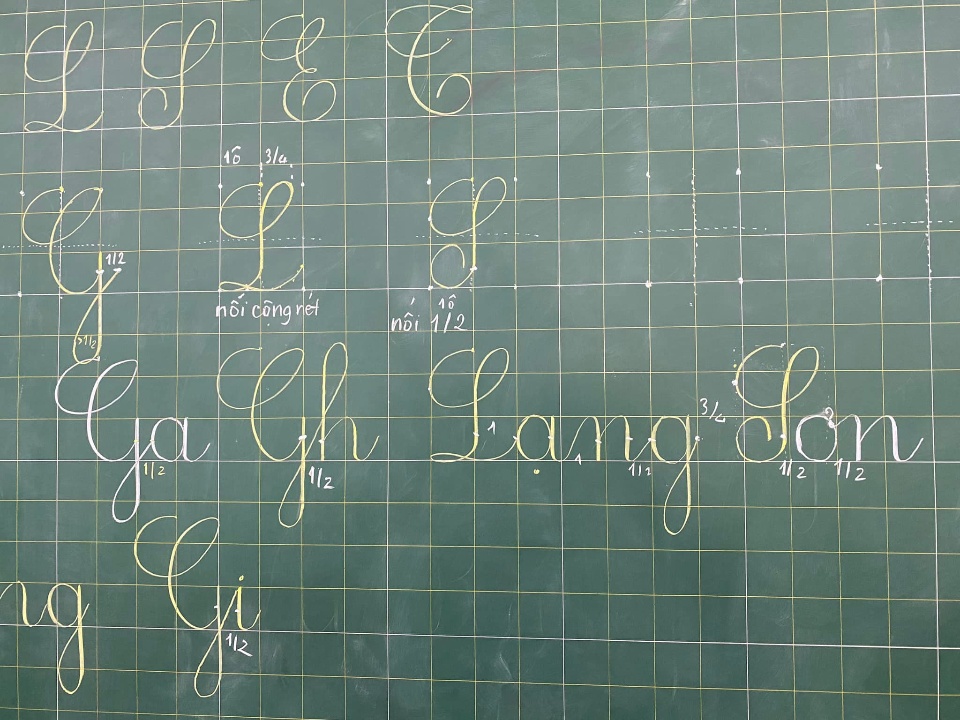 L S E T
1ô 3/4
G L S
1/2
nối cộng nét
1ô
nối 1/2
1/2
Ga Gh Lạng Sơn
3/4
1 2
1/2 1/2 1 1/2 1/2 1/2
ng Gi
1/2